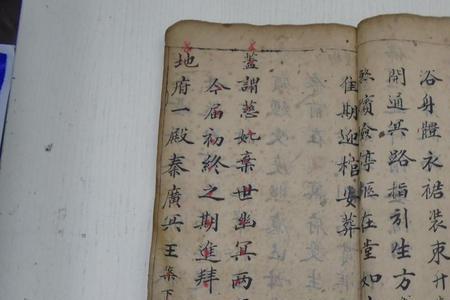 浴身體衣裾裝束
開通冥路指引生方
殯殮停柩在堂如
佳期迎棺安葬
蓋謂慈妣棄世幽冥兩
今屆初終之期進拜
地府一殿秦廣冥王案下